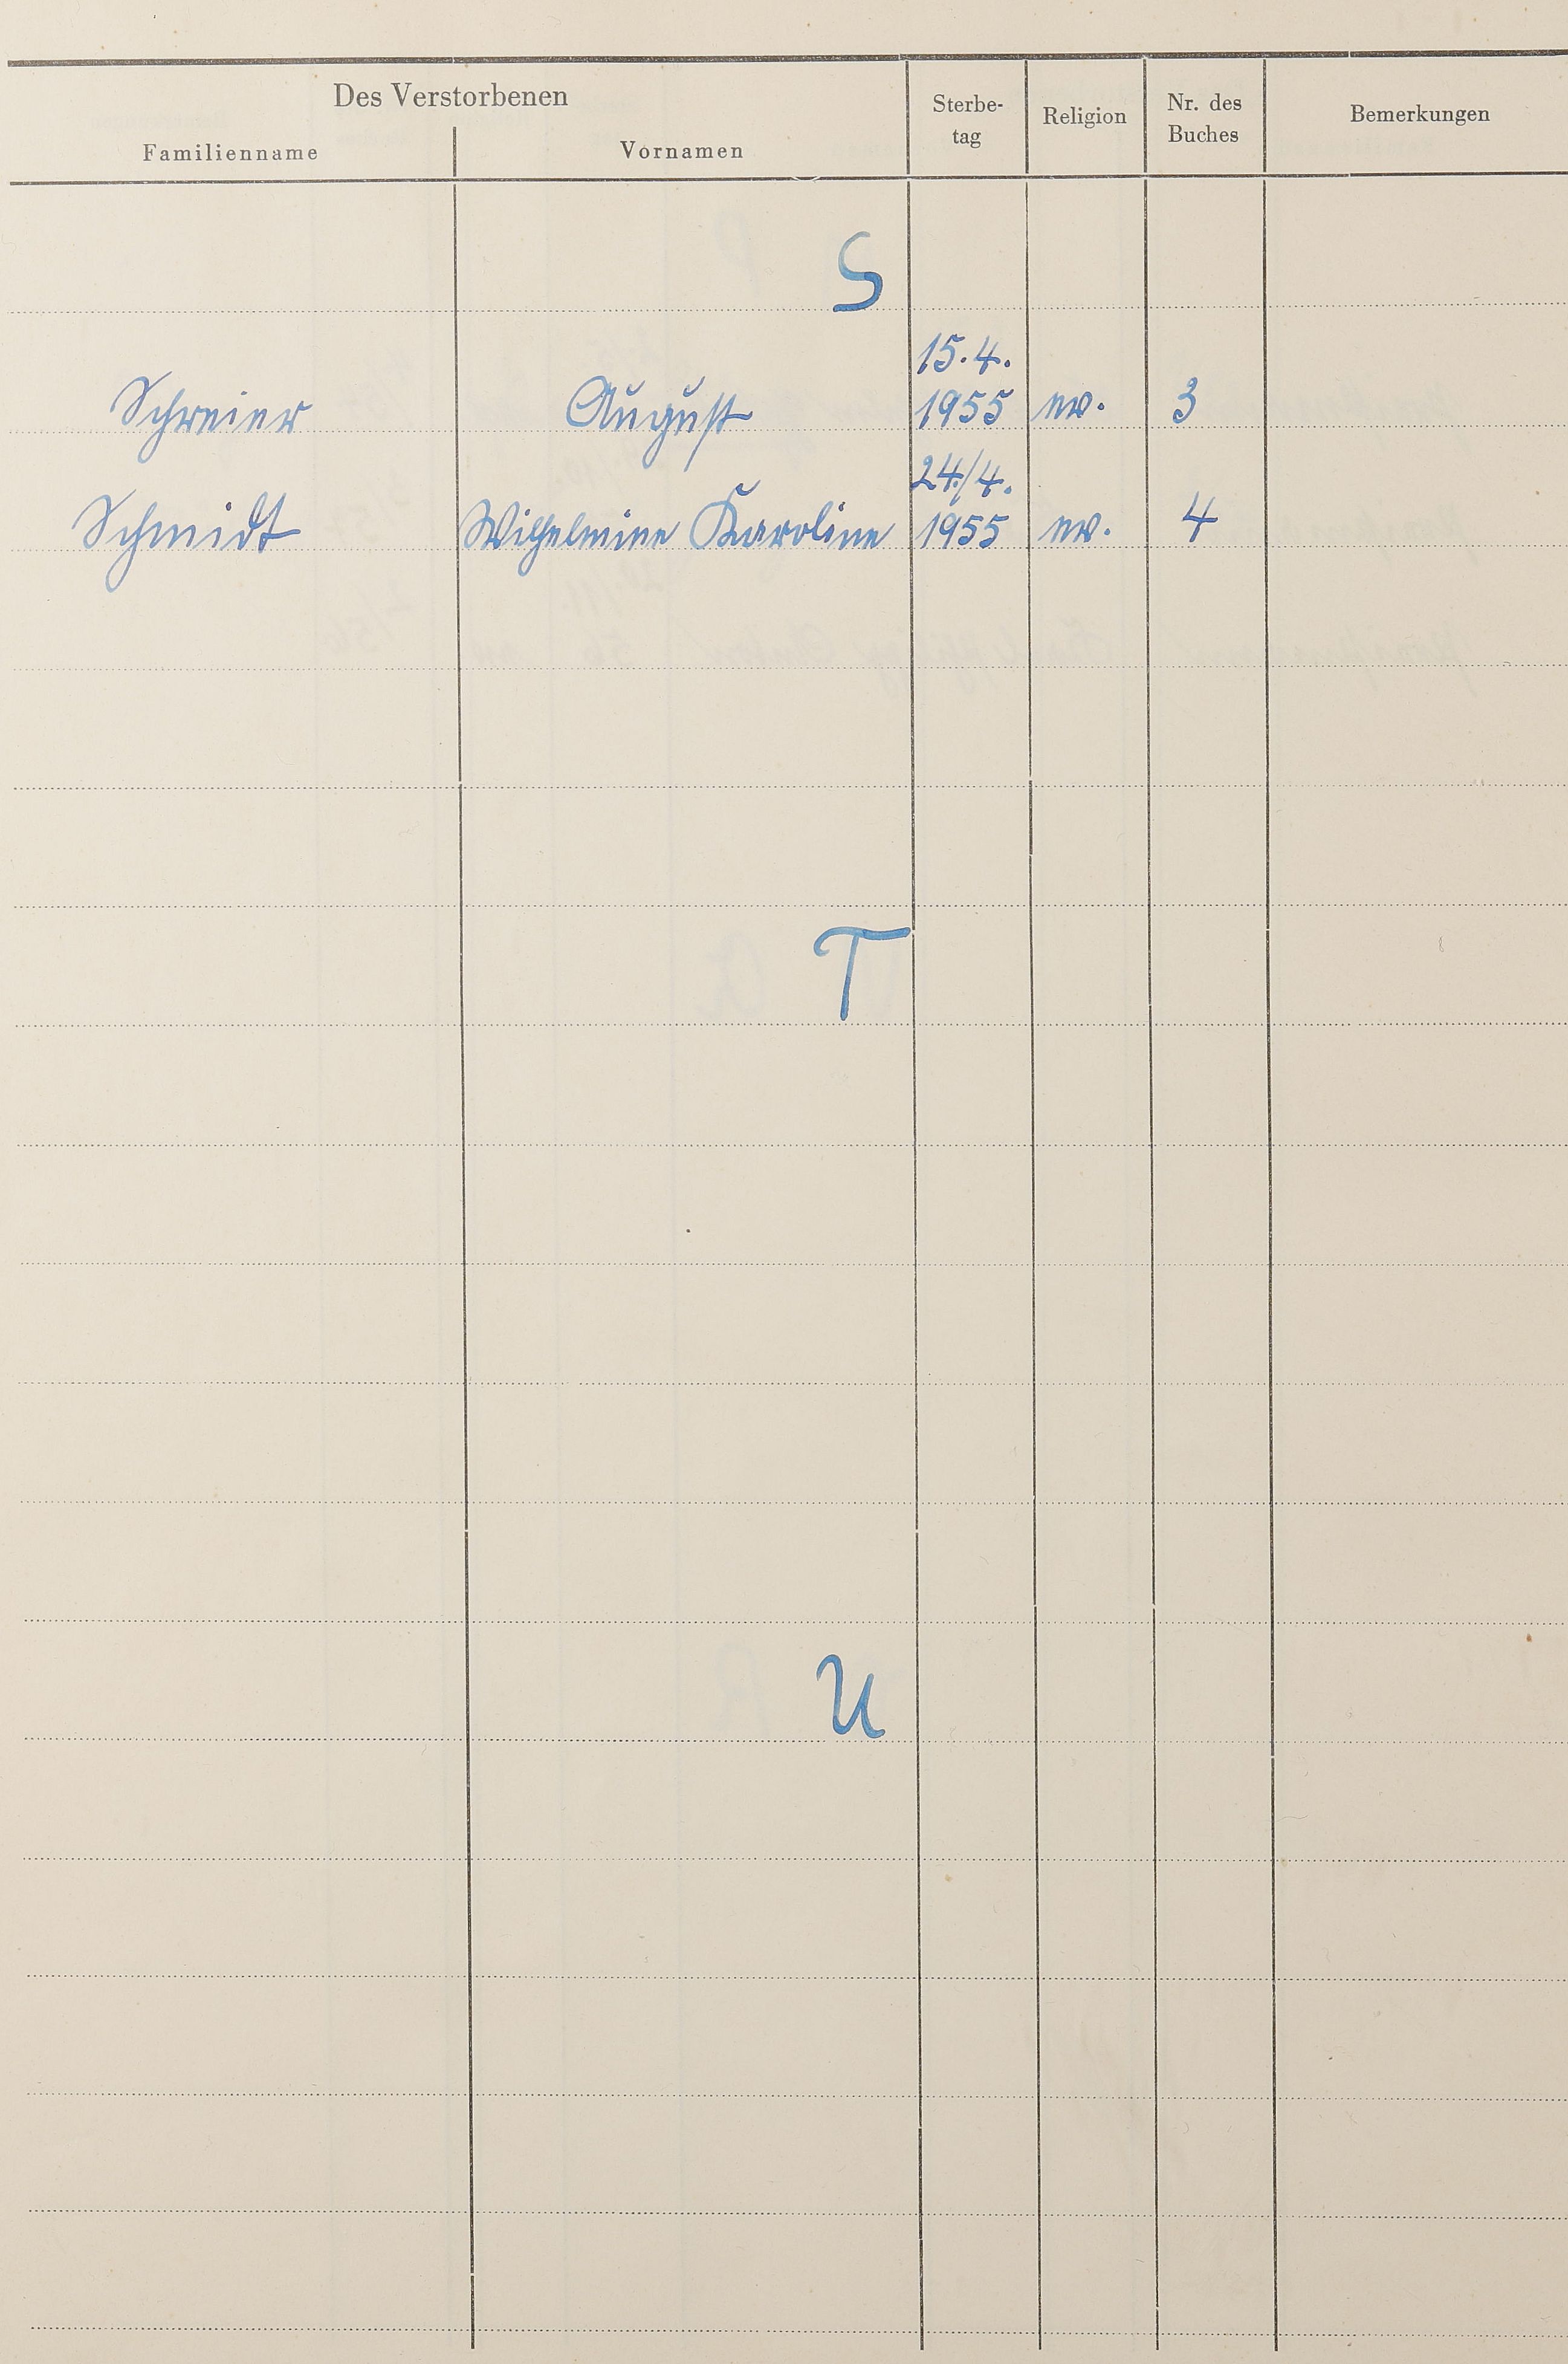 Des Verstorbenen
Familienname Vornamen Sterbe-
tag Religion Nr. des
Buches Bemerkungen
S
15.4.
Schreier August 1955 ev. 3
24./4.
Schmidt Wilhelmine Karoline 1955 ev. 4
T
U